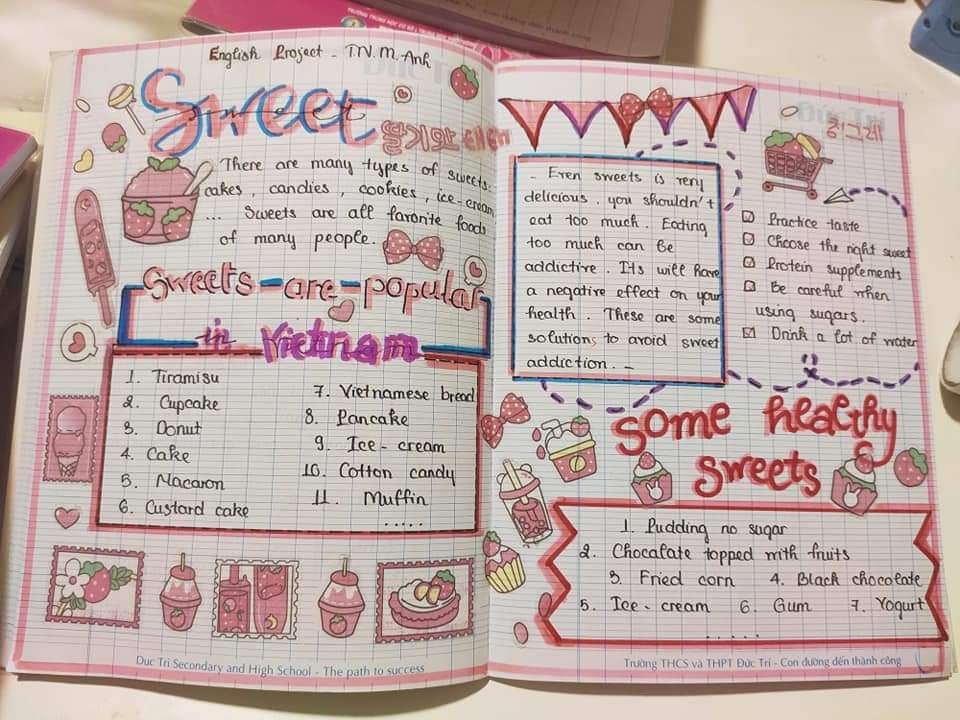 English Project - T.V.M.Anh
Sweet
딸기와
There are many types of sweets:
cakes, candies, cookies, ice-cream
... Sweets are all favorite foods
of many people.
Sweets-are-popular
in Vietnam
1. Tiramisu
2. Cupcake
3. Donut
4. Cake
5. Macaron
6. Custard cake
7. Vietnamese bread
8. Pancake
9. Ice-cream
10. Cotton candy
11. Muffin
.....
Duc Tri Secondary and High School - The path to success
- Even sweets is very
delicious, you shouldn't
eat too much. Eating
too much can be
addictive. Its will have
a negative effect on your
health. These are some
solutions to avoid sweet
addiction. -
Practice taste
Choose the right sweet
Protein supplements
Be careful when
using sugars.
Drink a lot of water
some healthy
sweets
1. Pudding no sugar
2. Chocalate topped with fruits
3. Fried corn 4. Black chocolate
5. Ice-cream 6. Gum 7. Yogurt
.....
Trường THCS và THPT Đức Trí - Con đường dẫn đến thành công